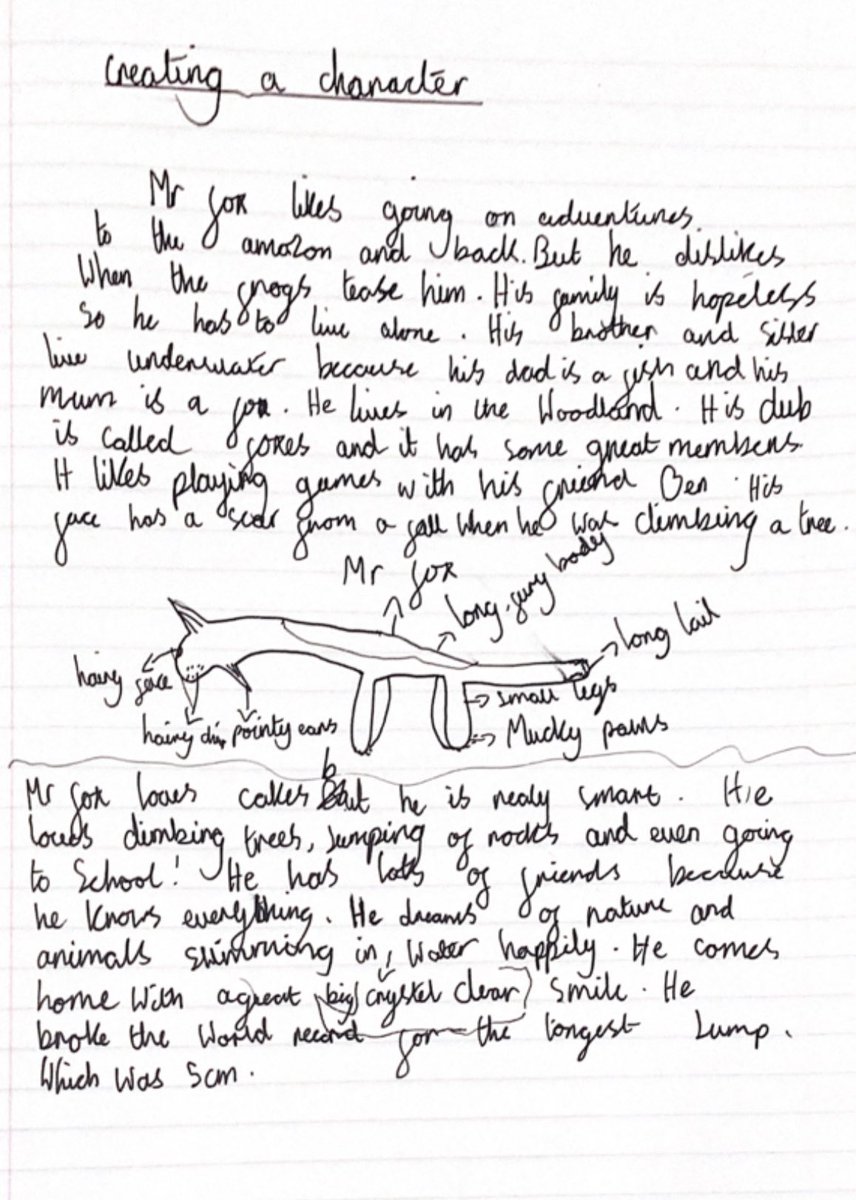 Creating a character
Mr fox likes going on adventures
to the amazon and back. But he dislikes
When the frogs tease him. His family is hopeless
So he has to live alone. His brother and sister
live underwater because his dad is a fish and his
mum is a fox. He lives in the Woodland. His club
is called foxes and it has some great members
It likes playing games with his friend Ben. His
face has a scar from a fall When he was climbing a tree.
Mr fox
long furry body
long tail
hairy face
small legs
hairy chin
pointy ears
Mucky paws
Mr fox loves cakes but he is realy smart. He
loves climbing trees, Jumping of rocks and even going
to School! He has lots of friends because
he knows everything. He dreams of nature and
animals swimming in, Water happily. He comes
home With a great big crystel clear smile. He
broke the World record for the longest Jump.
Which Was 5cm.